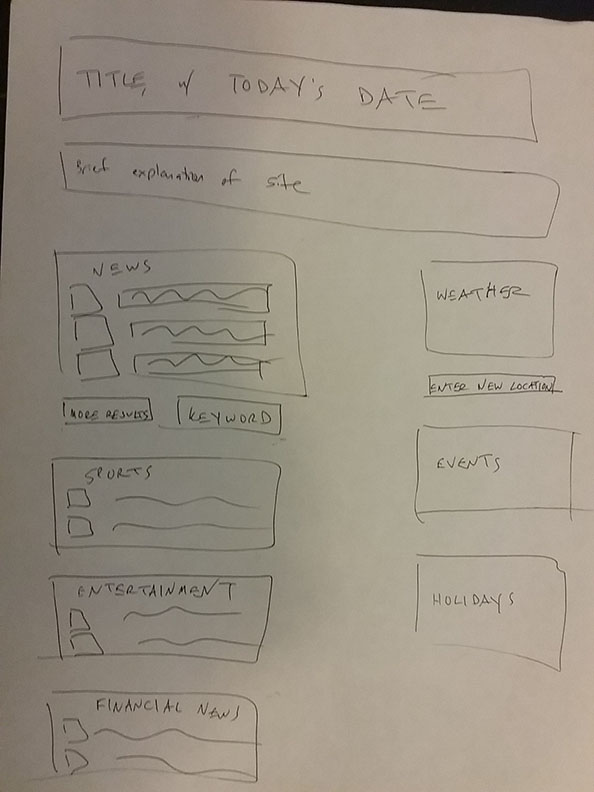 TITLE, w/ TODAY'S DATE
Brief explanation of site
NEWS
MORE RESULTS
KEYWORD
SPORTS
ENTERTAINMENT
FINANCIAL NEWS
WEATHER
ENTER NEW LOCATION
EVENTS
HOLIDAYS